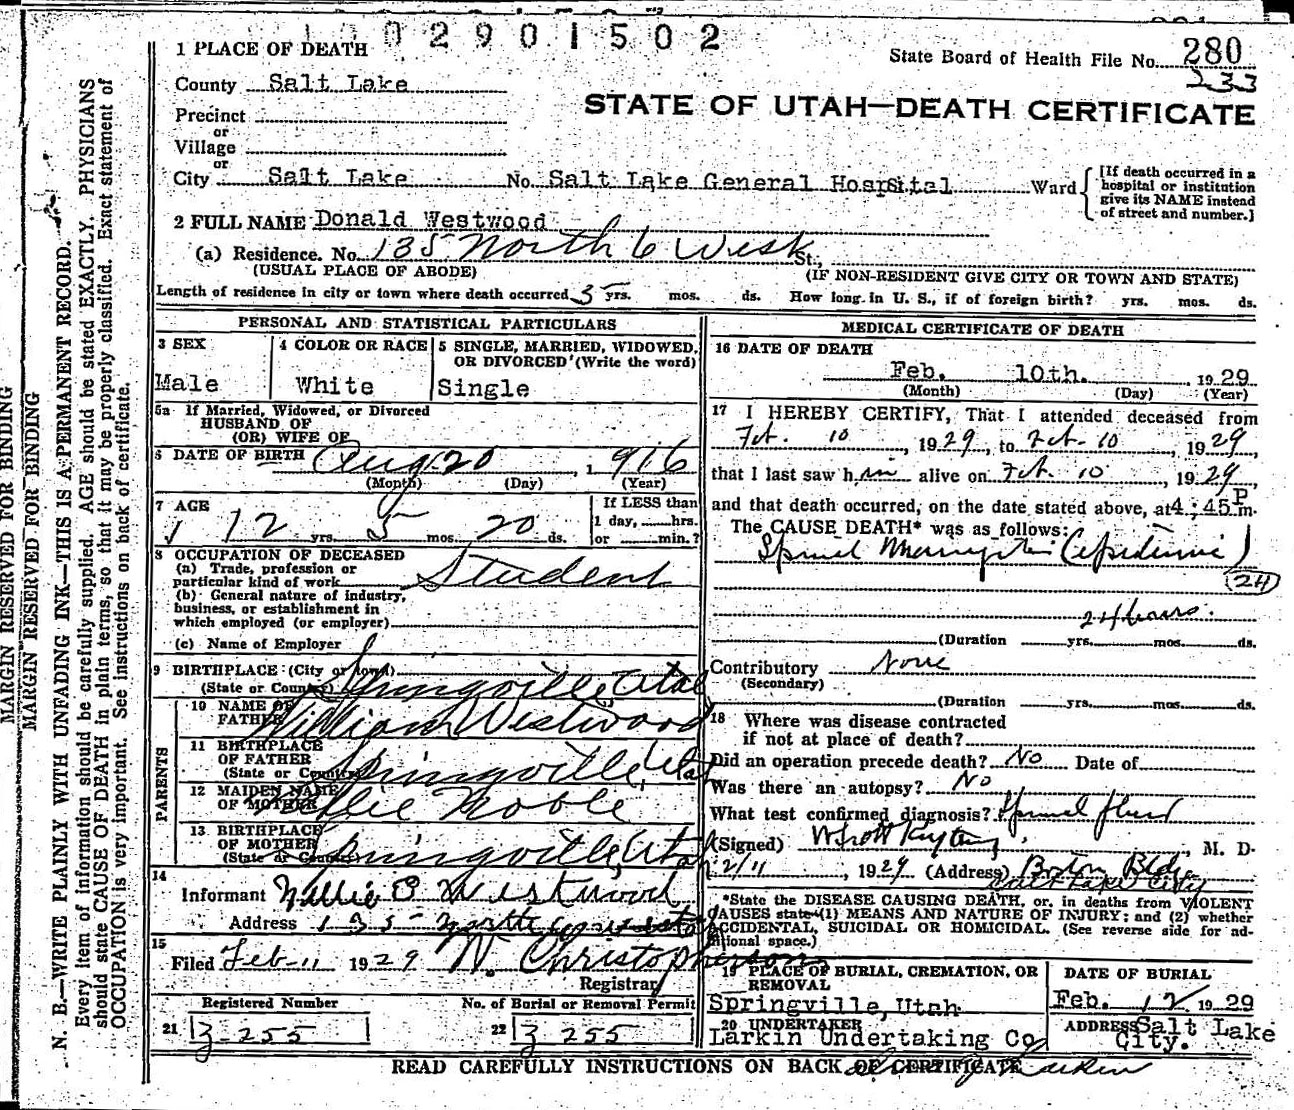 0 2 9 0 1 5 0 2
1 PLACE OF DEATH
State Board of Health File No. 280
233
County Salt Lake
STATE OF UTAH—DEATH CERTIFICATE
Precinct
or
Village
or
City Salt Lake No. Salt Lake General Hospital Ward
[If death occurred in a
hospital or institution
give its NAME instead
of street and number.]
2 FULL NAME Donald Westwood
(a) Residence. No. 135 North 6 West St.,
(USUAL PLACE OF ABODE) (IF NON-RESIDENT GIVE CITY OR TOWN AND STATE)
Length of residence in city or town where death occurred 5 yrs. mos. ds. How long in U. S., if of foreign birth? yrs. mos. ds.
PERSONAL AND STATISTICAL PARTICULARS
3 SEX
Male
4 COLOR OR RACE
White
5 SINGLE, MARRIED, WIDOWED,
OR DIVORCED (Write the word)
Single
5a If Married, Widowed, or Divorced
HUSBAND OF
(OR) WIFE OF
6 DATE OF BIRTH Aug 20, 1 916
(Month) (Day) (Year)
7 AGE
12 yrs. 5 mos. 20 ds.
If LESS than
1 day, hrs.
or min.?
8 OCCUPATION OF DECEASED
(a) Trade, profession or
particular kind of work Student
(b) General nature of industry,
business, or establishment in
which employed (or employer)
(c) Name of Employer
9 BIRTHPLACE (City or town)
(State or Country) Springville, Utah
PARENTS
10 NAME OF
FATHER William Westwood
11 BIRTHPLACE
OF FATHER
(State or Country) Springville, Utah
12 MAIDEN NAME
OF MOTHER Nellie Noble
13 BIRTHPLACE
OF MOTHER
(State or Country) Springville, Utah
14
Informant Nellie Westwood
Address 135 North
15
Filed Feb 11 1929 N. Christopherson
Registrar
Registered Number
21 255
No. of Burial or Removal Permit
22 255
MEDICAL CERTIFICATE OF DEATH
16 DATE OF DEATH
Feb. 10th. , 1929
(Month) (Day) (Year)
17 I HEREBY CERTIFY, That I attended deceased from
Feb. 10, 1929, to Feb. 10, 1929,
that I last saw him alive on Feb. 10, 1929,
and that death occurred, on the date stated above, at 4:45 P m.
The CAUSE DEATH* was as follows:
Spinal Meningitis (epidemic)
(24)
24 hours.
(Duration yrs. mos. ds.
Contributory None
(Secondary)
(Duration yrs. mos. ds.
18 Where was disease contracted
if not at place of death?
Did an operation precede death? No Date of
Was there an autopsy? No
What test confirmed diagnosis? Spinal fluid
(Signed) , M. D.
2/11, 1929 (Address) Boston Bldg
Salt Lake City
*State the DISEASE CAUSING DEATH, or, in deaths from VIOLENT
CAUSES state (1) MEANS AND NATURE OF INJURY; and (2) whether
ACCIDENTAL, SUICIDAL OR HOMICIDAL. (See reverse side for ad-
ditional space.)
19 PLACE OF BURIAL, CREMATION, OR
REMOVAL
Springville, Utah
DATE OF BURIAL
Feb. 12 1929
20 UNDERTAKER
Larkin Undertaking Co
ADDRESS Salt Lake
City.
READ CAREFULLY INSTRUCTIONS ON BACK OF CERTIFICATE
MARGIN RESERVED FOR BINDING
MARGIN RESERVED FOR BINDING
N. B.—WRITE PLAINLY WITH UNFADING INK—THIS IS A PERMANENT RECORD.
Every item of information should be carefully supplied. AGE should be stated EXACTLY. PHYSICIANS
should state CAUSE OF DEATH in plain terms, so that it may be properly classified. Exact statement of
OCCUPATION is very important. See instructions on back of certificate.